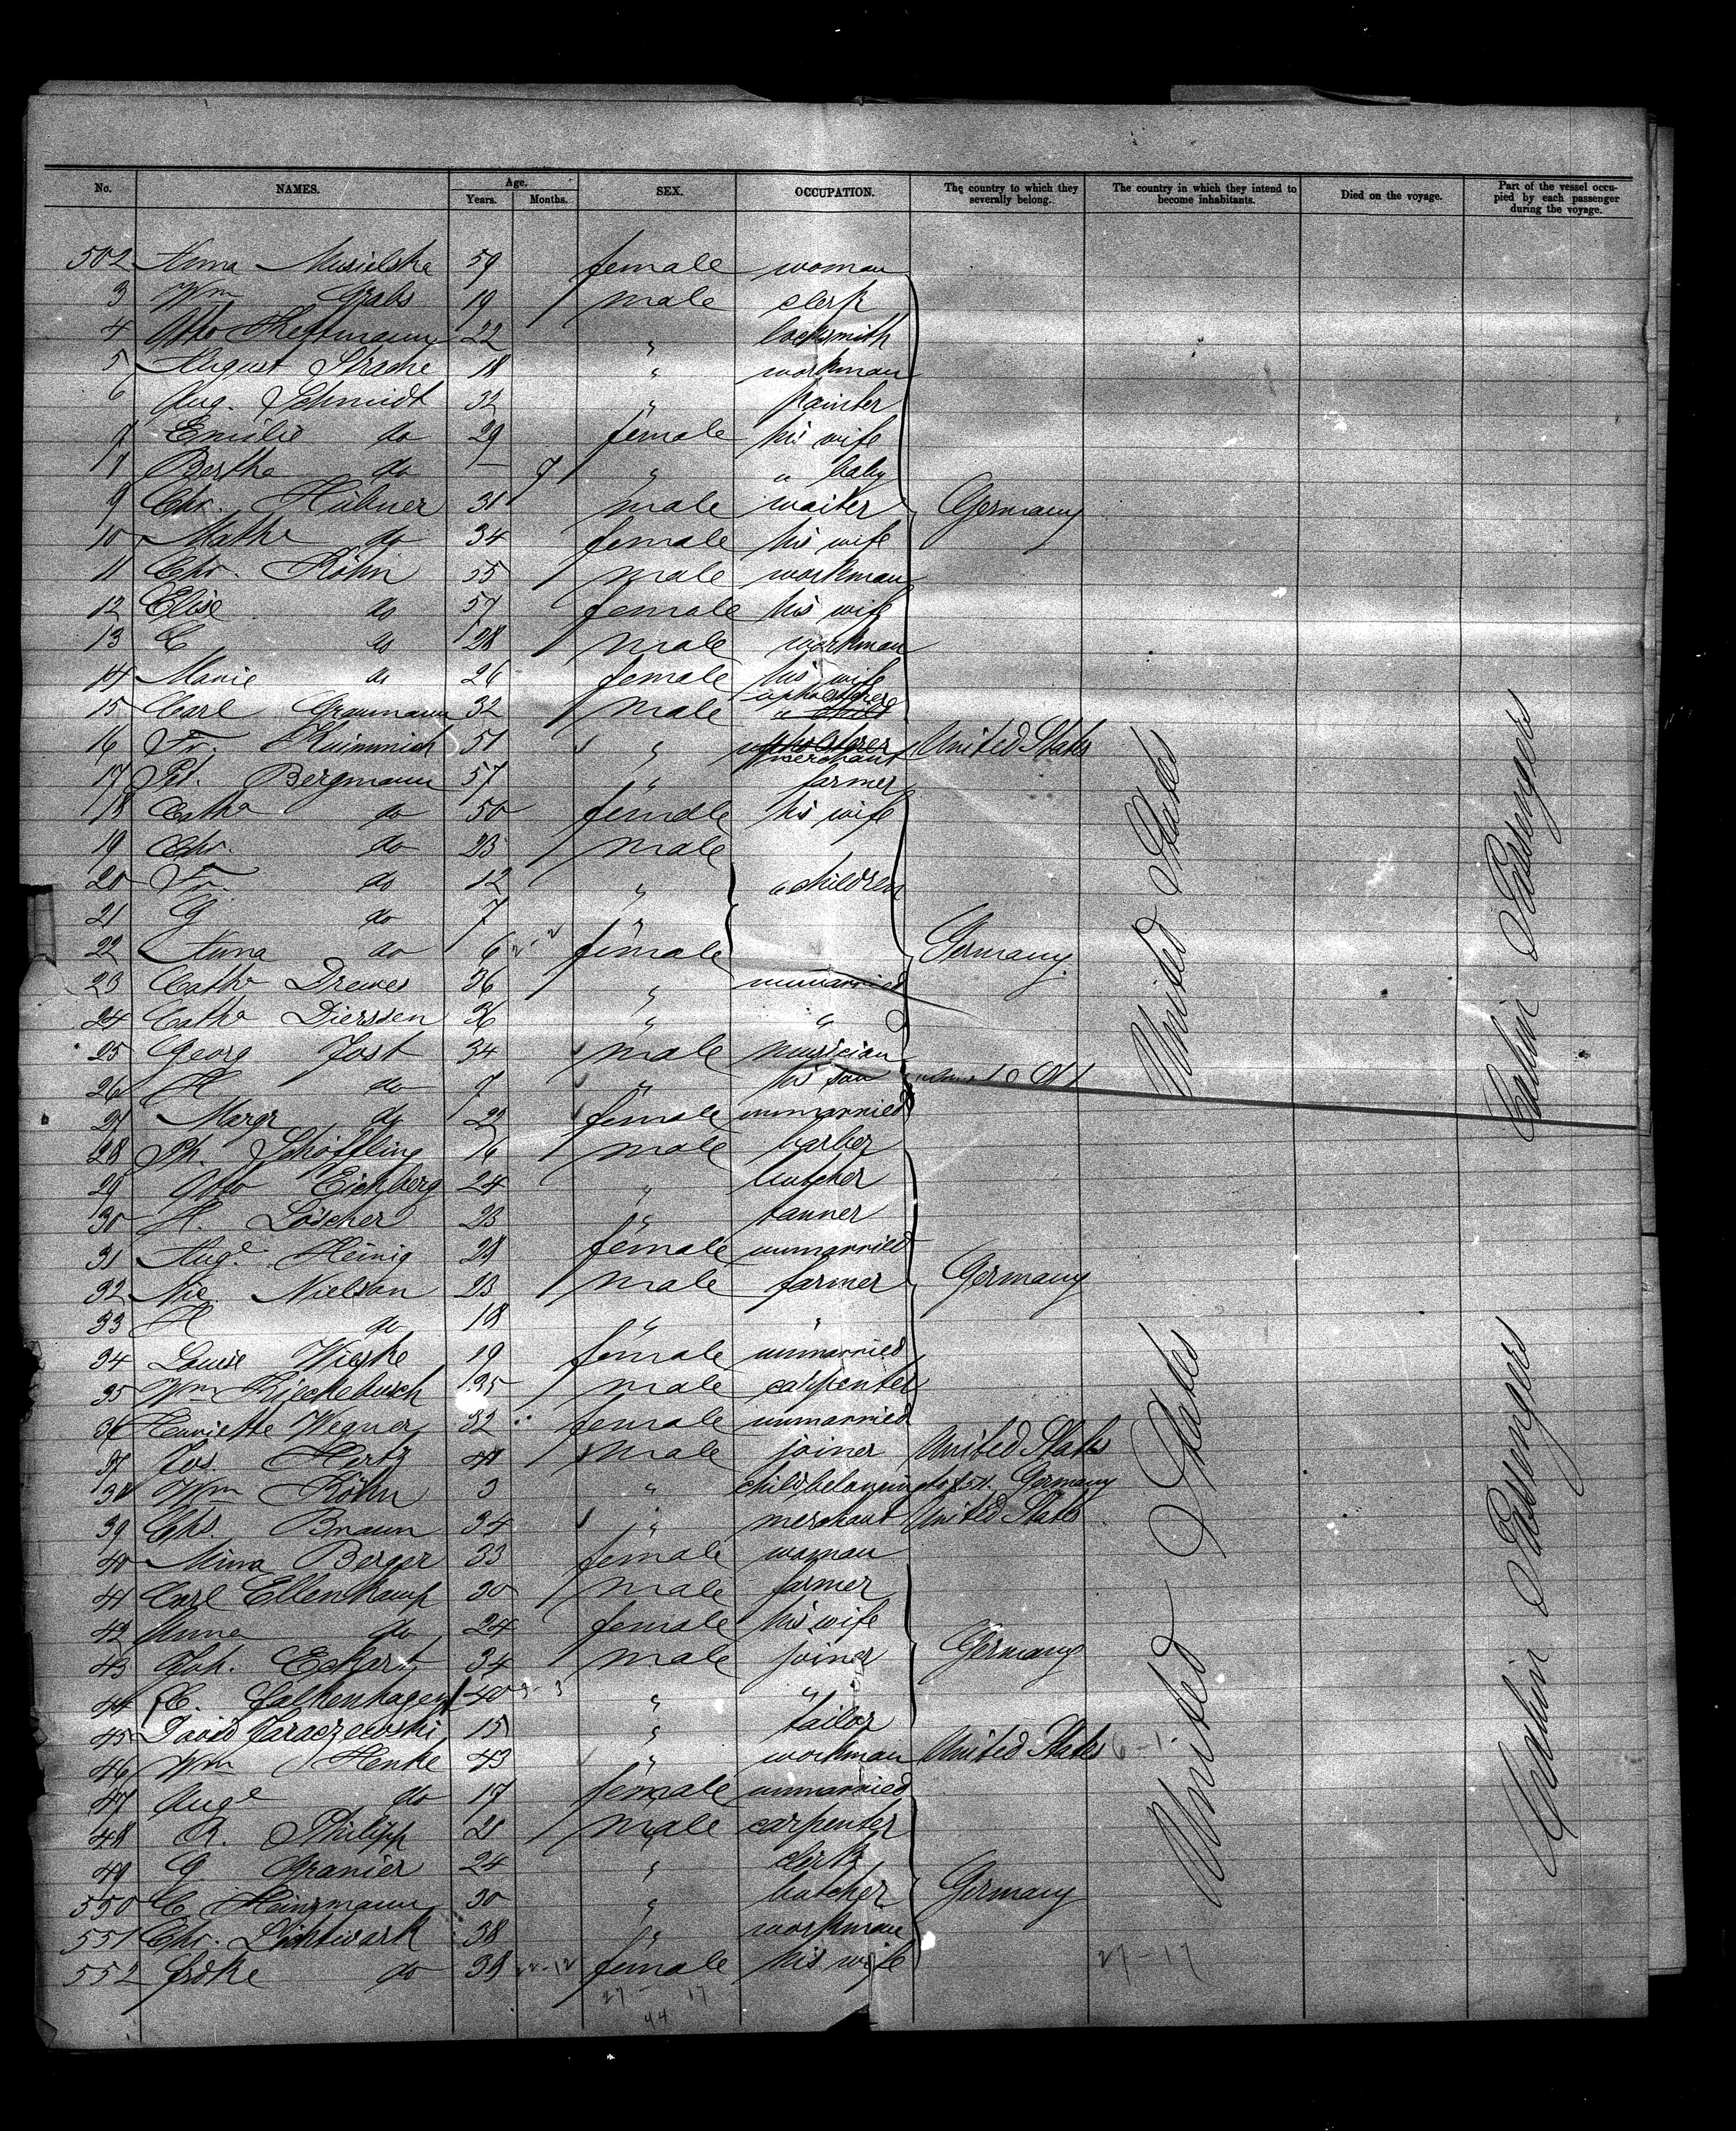 No. NAMES. Age. Years. Months. SEX. OCCUPATION. The country to which they severally belong. The country in which they intend to become inhabitants. Died on the voyage. Part of the vessel occupied by each passenger during the voyage.
502 Anna Musielska 59 female woman
3 Wm Grabs 19 male clerk
4 Otto Heftmann 22 " locksmith
5 August Strache 18 " workman
6 Aug. Schmidt 32 " painter
7 Emilie do 29 female his wife
8 Bertha do — 9 " " baby
9 Chr. Hübner 31 male waiter Germany
10 Mathe do 34 female his wife
11 Chr. Köhn 55 male workman
12 Elise do 57 female his wife
13 C do 28 male workman
14 Marie do 26 female his wife
15 Carl Graumann 32 male upholsterer
16 Fr. 51 " merchant United States
17 Pet. Bergmann 57 " farmer
18 Catha do 50 female his wife
19 Chr. do 23 male
20 Fr. do 12 " " children
21 G do 7
22 Anna do 6 female Germany
23 Catha Drewes 36 " unmarried
24 Catha Dierssen 36 " "
25 Georg Jost 34 male musician
26 H do 7 " his son
27 Margr do 22 female unmarried
28 Ph. Schöffling 16 male barber
29 Otto Eichberg 24 " butcher
30 H. Löscher 23 " tanner
31 Auge Heinig 28 female unmarried
32 Nic. Nielson 23 male farmer Germany
33 H do 18 " "
34 Louise Wieske 19 female unmarried
35 Wm Kieckebusch 35 male carpenter
36 Henriette Wegner 32 female unmarried
37 Jos. Hertz 41 male joiner United States
38 Wm Köhn 3 " child belonging to Germany
39 Chs. Braun 34 " merchant United States
40 Minna Berger 33 female woman
41 Carl Ellenkamp 30 male farmer
42 Anna do 24 female his wife
43 Joh. Eckart 34 male joiner Germany
44 C. Falkenhagen 40 " "
45 David Jaraczewski 15 " tailor
46 Wm Henke 43 " workman United States 6-1
47 Auge do 17 female unmarried
48 R. Philipp 21 male carpenter
49 G. Granier 24 " clerk
550 C. Heinzmann 30 " butcher Germany
551 Chr. Lichtwark 38 " workman
552 Frdke do 38 female his wife
27-17
27 - 17
44
United States
United States
Cabin Passengers
Cabin Passengers